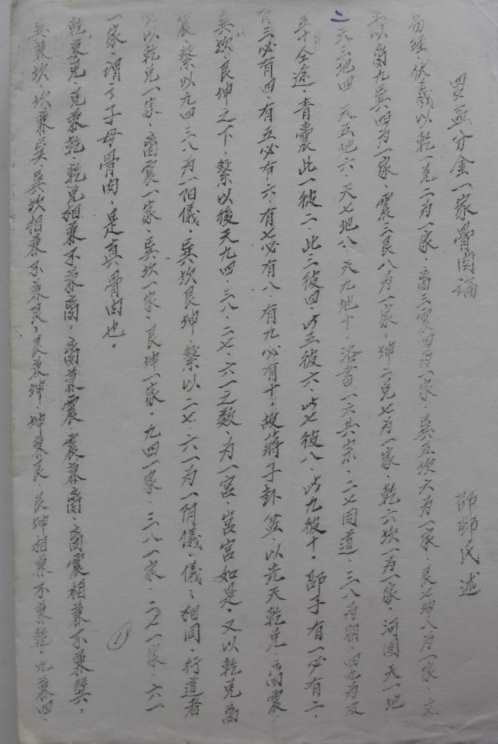 罗盘分金一家骨肉論
師郎氏述
易哇·伏羲以乾一兌二为一家·离三震四为一家·巽五坎六为一家·艮七坤八为一家·文
王以离九巽四为一家·震三艮八为一家·坤二兌七为一家·乾六坎一为一家·河图天一地
二天三地四 天五地六·天七地八 天九地十·洛書一六共宗·二七同道·三八为朋·四九为友
五十全途·青囊此一彼二·此三彼四·此五彼六·此七彼八·此九彼十·邵子有一必有二·
有三必有四·有五必有六·有七必有八·有九必有十·故蔣子卦盆·以先天乾兌离震
巽坎艮坤之下·繫以後天九四·三八·二七·六一之数·为一宮·宮宮如是·又以乾兌离
震繫以九四三八为一阳儀·巽坎艮坤·繫以二七·六一为一阴儀·儀儀相同·行道者
以乾兌一家·离震一家·巽坎一家·艮坤一家·九四一家·三八一家·二七一家·六一
一家·謂之子母骨肉·是真骨肉也·
乾兼兌·兌兼乾·乾兌相兼不兼离·离兼震·震兼离·离震相兼不兼巽·
巽兼坎·坎兼巽·巽坎相兼不兼艮·艮兼坤·坤兼艮·艮坤相兼不兼乾·九兼四·
①